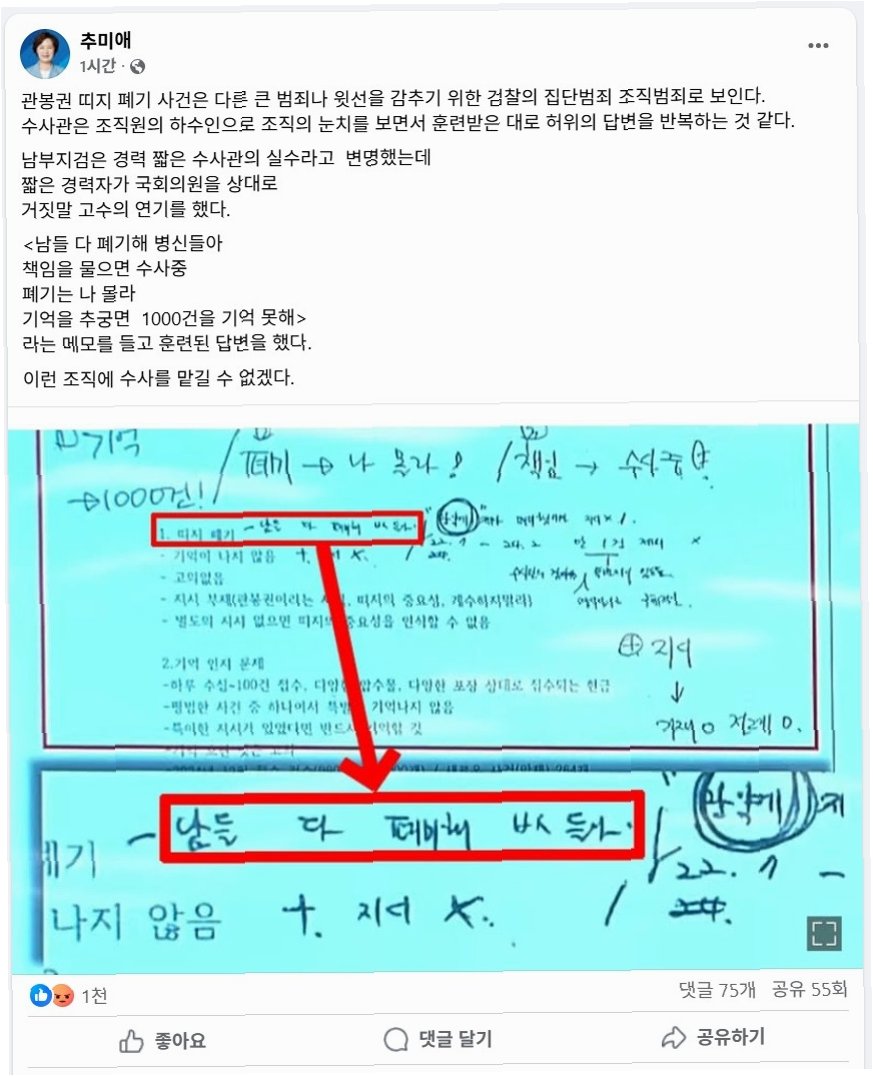 추미애
1시간
관봉권 띠지 폐기 사건은 다른 큰 범죄나 윗선을 감추기 위한 검찰의 집단범죄 조직범죄로 보인다.
수사관은 조직원의 하수인으로 조직의 눈치를 보면서 훈련받은 대로 허위의 답변을 반복하는 것 같다.
남부지검은 경력 짧은 수사관의 실수라고 변명했는데
짧은 경력자가 국회의원을 상대로
거짓말 고수의 연기를 했다.
<남들 다 폐기해 병신들아
책임을 물으면 수사중
폐기는 나 몰라
기억을 추궁면 1000건을 기억 못해>
라는 메모를 들고 훈련된 답변을 했다.
이런 조직에 수사를 맡길 수 없겠다.
기억
폐기 → 나 몰라! / 책임 → 수사중
→1000건!
1. 띠지 폐기 - 남들 다 폐기해 ㅂㅅ들아.
- 기억이 나지 않음 +. 지시 X.
22. 7 -
- 고의없음
- 지시 부재(관봉권이라는 사실, 띠지의 중요성, 계수하지말라)
- 별도의 지시 없으면 띠지의 중요성을 인식할 수 없음
⊕ 지시
↓
2.기억 인지 문제
-하루 수십~100건 접수, 다양한 압수물, 다양한 포장 상태로 접수되는 현금
-평범한 사건 중 하나여서 특별히 기억나지 않음
-특이한 지시가 있었다면 반드시 기억할 것
폐기 - 남들 다 폐기해 ㅂㅅ들아. /
22. 7 -
나지 않음 +. 지시 X. /
1천
댓글 75개 공유 55회
좋아요 댓글 달기 공유하기